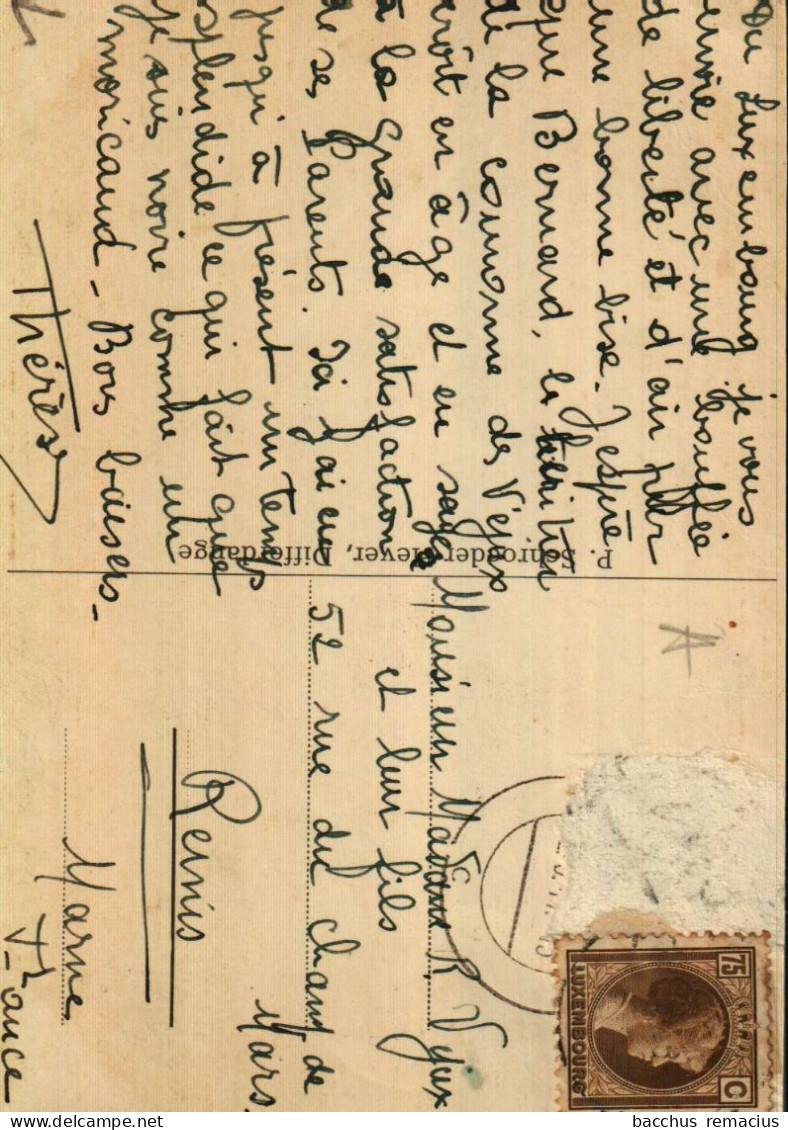 Du Luxembourg je vous
envoie avec une bouffée
de liberté et d'air pur
une bonne bise. J'espère
que Bernard, le héritier
de la couronne des Vejux
croît en âge et en sagesse
à la grande satisfaction
de ses Parents. Ici j'ai eu
jusqu'à présent un temps
splendide ce qui fait que
je suis noire comme un
moricaud - Bons baisers -
Thérèse
P. Schroeder-Meyer, Differdange
Monsieur Madame R. Vejux
et leur fils
52 rue du Champ de
Mars
Reims
Marne
France
75 C
LUXEMBOURG
bacchus remacius